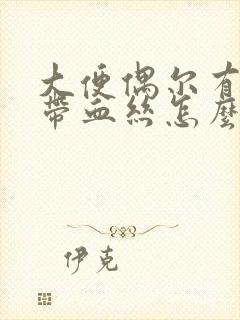 大便偶尔有
带血丝怎麼
伊克